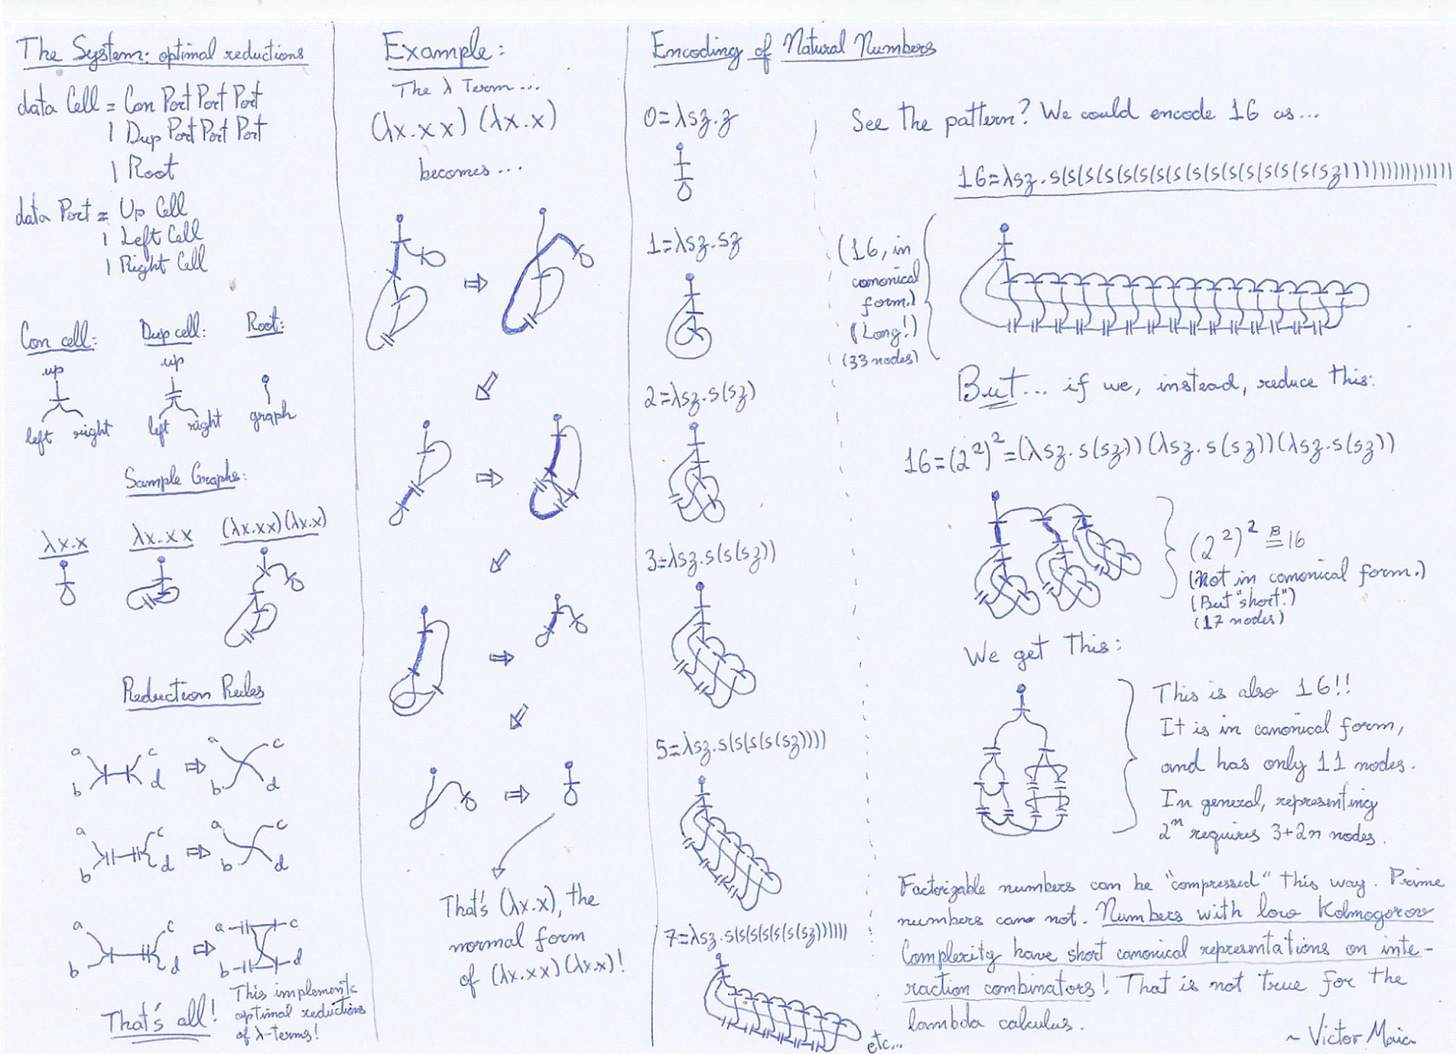 The System: optimal reductions
data Cell = Con Port Port Port
| Dup Port Port Port
| Root
data Port = Up Cell
| Left Cell
| Right Cell
Con cell:
up
left right
Dup cell:
up
left right
Root:
graph
Sample Graphs:
λx.x
λx.xx
(λx.xx)(λx.x)
Reduction Rules
a c
b d
⇒
a c
b d
a c
b d
⇒
a c
b d
a c
b d
⇒
a c
b d
That's all!
This implements
optimal reductions
of λ-terms!
Example:
The λ Term...
(λx.xx)(λx.x)
becomes...
That's (λx.x), the
normal form
of (λx.xx)(λx.x)!
Encoding of Natural Numbers
0=λsz.z
1=λsz.sz
2=λsz.s(sz)
3=λsz.s(s(sz))
5=λsz.s(s(s(s(sz))))
7=λsz.s(s(s(s(s(s(sz))))))
etc...
See the pattern? We could encode 16 as...
16=λsz.s(s(s(s(s(s(s(s(s(s(s(s(s(s(s(sz)))))))))))))))
(16, in
canonical
form.)
(Long!)
(33 nodes)
But... if we, instead, reduce this:
16=(2²)²=(λsz.s(sz))(λsz.s(sz))(λsz.s(sz))
(2²)² ≝ᴮ 16
(Not in canonical form.)
(But "short!")
(17 nodes)
We get this:
This is also 16!!
It is in canonical form,
and has only 11 nodes.
In general, representing
2ⁿ requires 3+2n nodes.
Factorizable numbers can be "compressed" this way. Prime
numbers can not. Numbers with low Kolmogorov
Complexity have short canonical representations on inte-
raction combinators! That is not true for the
lambda calculus.
~ Victor Maia